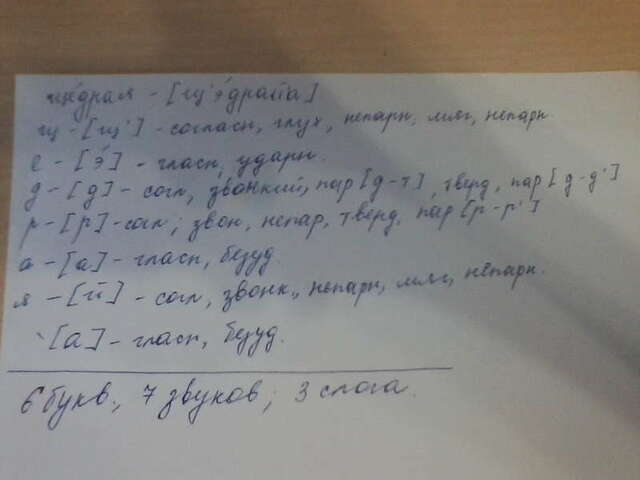 ще́драя - [щ'э́драйа]
щ - [щ'] - согласн, глух, непарн, мягк, непарн.
е - [э́] - гласн, ударн.
д - [д] - согл, звонкий, пар [д-т], тверд, пар [д-д']
р - [р] - согл; звон, непар, тверд, пар [р-р']
а - [а] - гласн, безуд.
я - [й] - согл, звонк., непарн, мягк, непарн.
\[а] - гласн, безуд.
6 букв, 7 звуков; 3 слога.